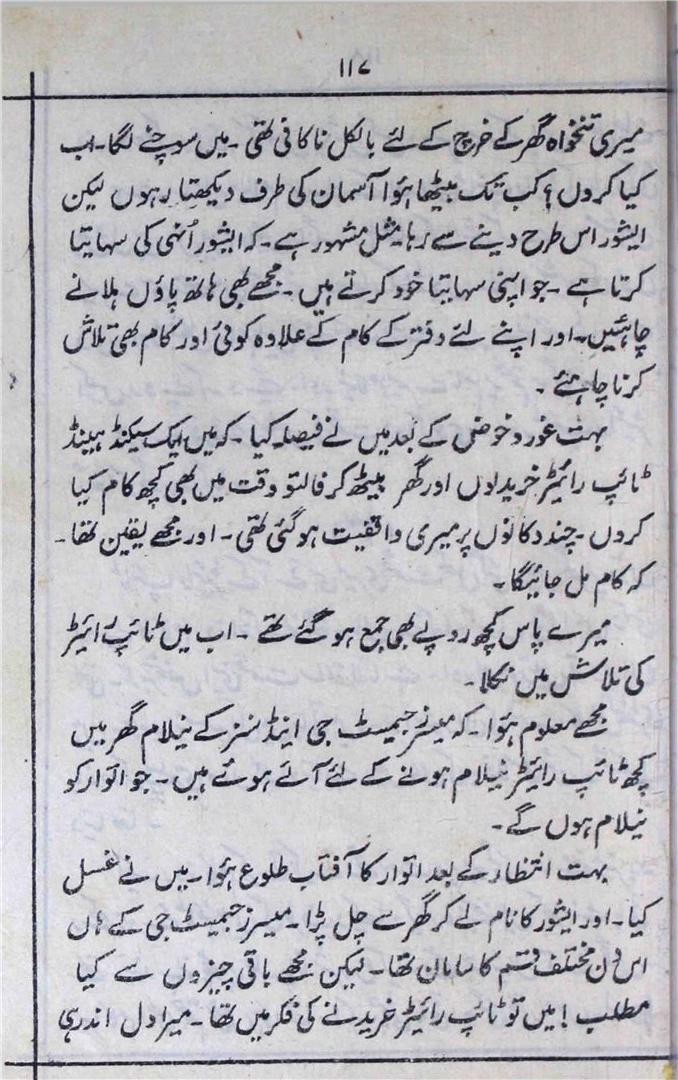 ۱۱۷
میری تنخواہ گھر کے خرچ کے لئے بالکل ناکافی تھی ۔ میں سوچنے لگا۔ اب
کیا کروں ؟ کب تک بیٹھا ہؤا آسمان کی طرف دیکھتا رہوں لیکن
ایشور اس طرح دینے سے رہا۔ مثل مشہور ہے ۔ کہ ایشور اُنہی کی سہایتا
کرتا ہے ۔ جو اپنی سہایتا خود کرتے ہیں ۔ مجھے بھی ہاتھ پاؤں ہلانے
چاہئیں۔ اور اپنے لئے دفتر کے کام کے علاوہ کوئی اور کام بھی تلاش
کرنا چاہئے ۔
بہت غور و خوض کے بعد میں نے فیصلہ کیا ۔ کہ میں ایک سیکنڈ ہینڈ
ٹائپ رائیٹر خریدلوں اور گھر بیٹھ کر فالتو وقت میں بھی کچھ کام کیا
کروں ۔ چند دکانوں پر میری واقفیت ہوگئی تھی ۔ اور مجھے یقین تھا ۔
کہ کام مل جائیگا ۔
میرے پاس کچھ روپے بھی جمع ہو گئے تھے ۔ اب میں ٹائپ رائیٹر
کی تلاش میں نکلا ۔
مجھے معلوم ہؤا ۔ کہ میسرز جمیسٹ جی اینڈ سنز کے نیلام گھر میں
کچھ ٹائپ رائیٹر نیلام ہونے کے لئے آئے ہوئے ہیں ۔ جو اتوار کو
نیلام ہوں گے ۔
بہت انتظار کے بعد اتوار کا آفتاب طلوع ہؤا ۔ میں نے غسل
کیا ۔ اور ایشور کا نام لے کر گھر سے چل پڑا ۔ میسرز جمیسٹ جی کے ہاں
اس دن مختلف قسم کا سامان تھا ۔ لیکن مجھے باقی چیزوں سے کیا
مطلب ! میں تو ٹائپ رائیٹر خریدنے کی فکر میں تھا ۔ میرا دل اندر ہی